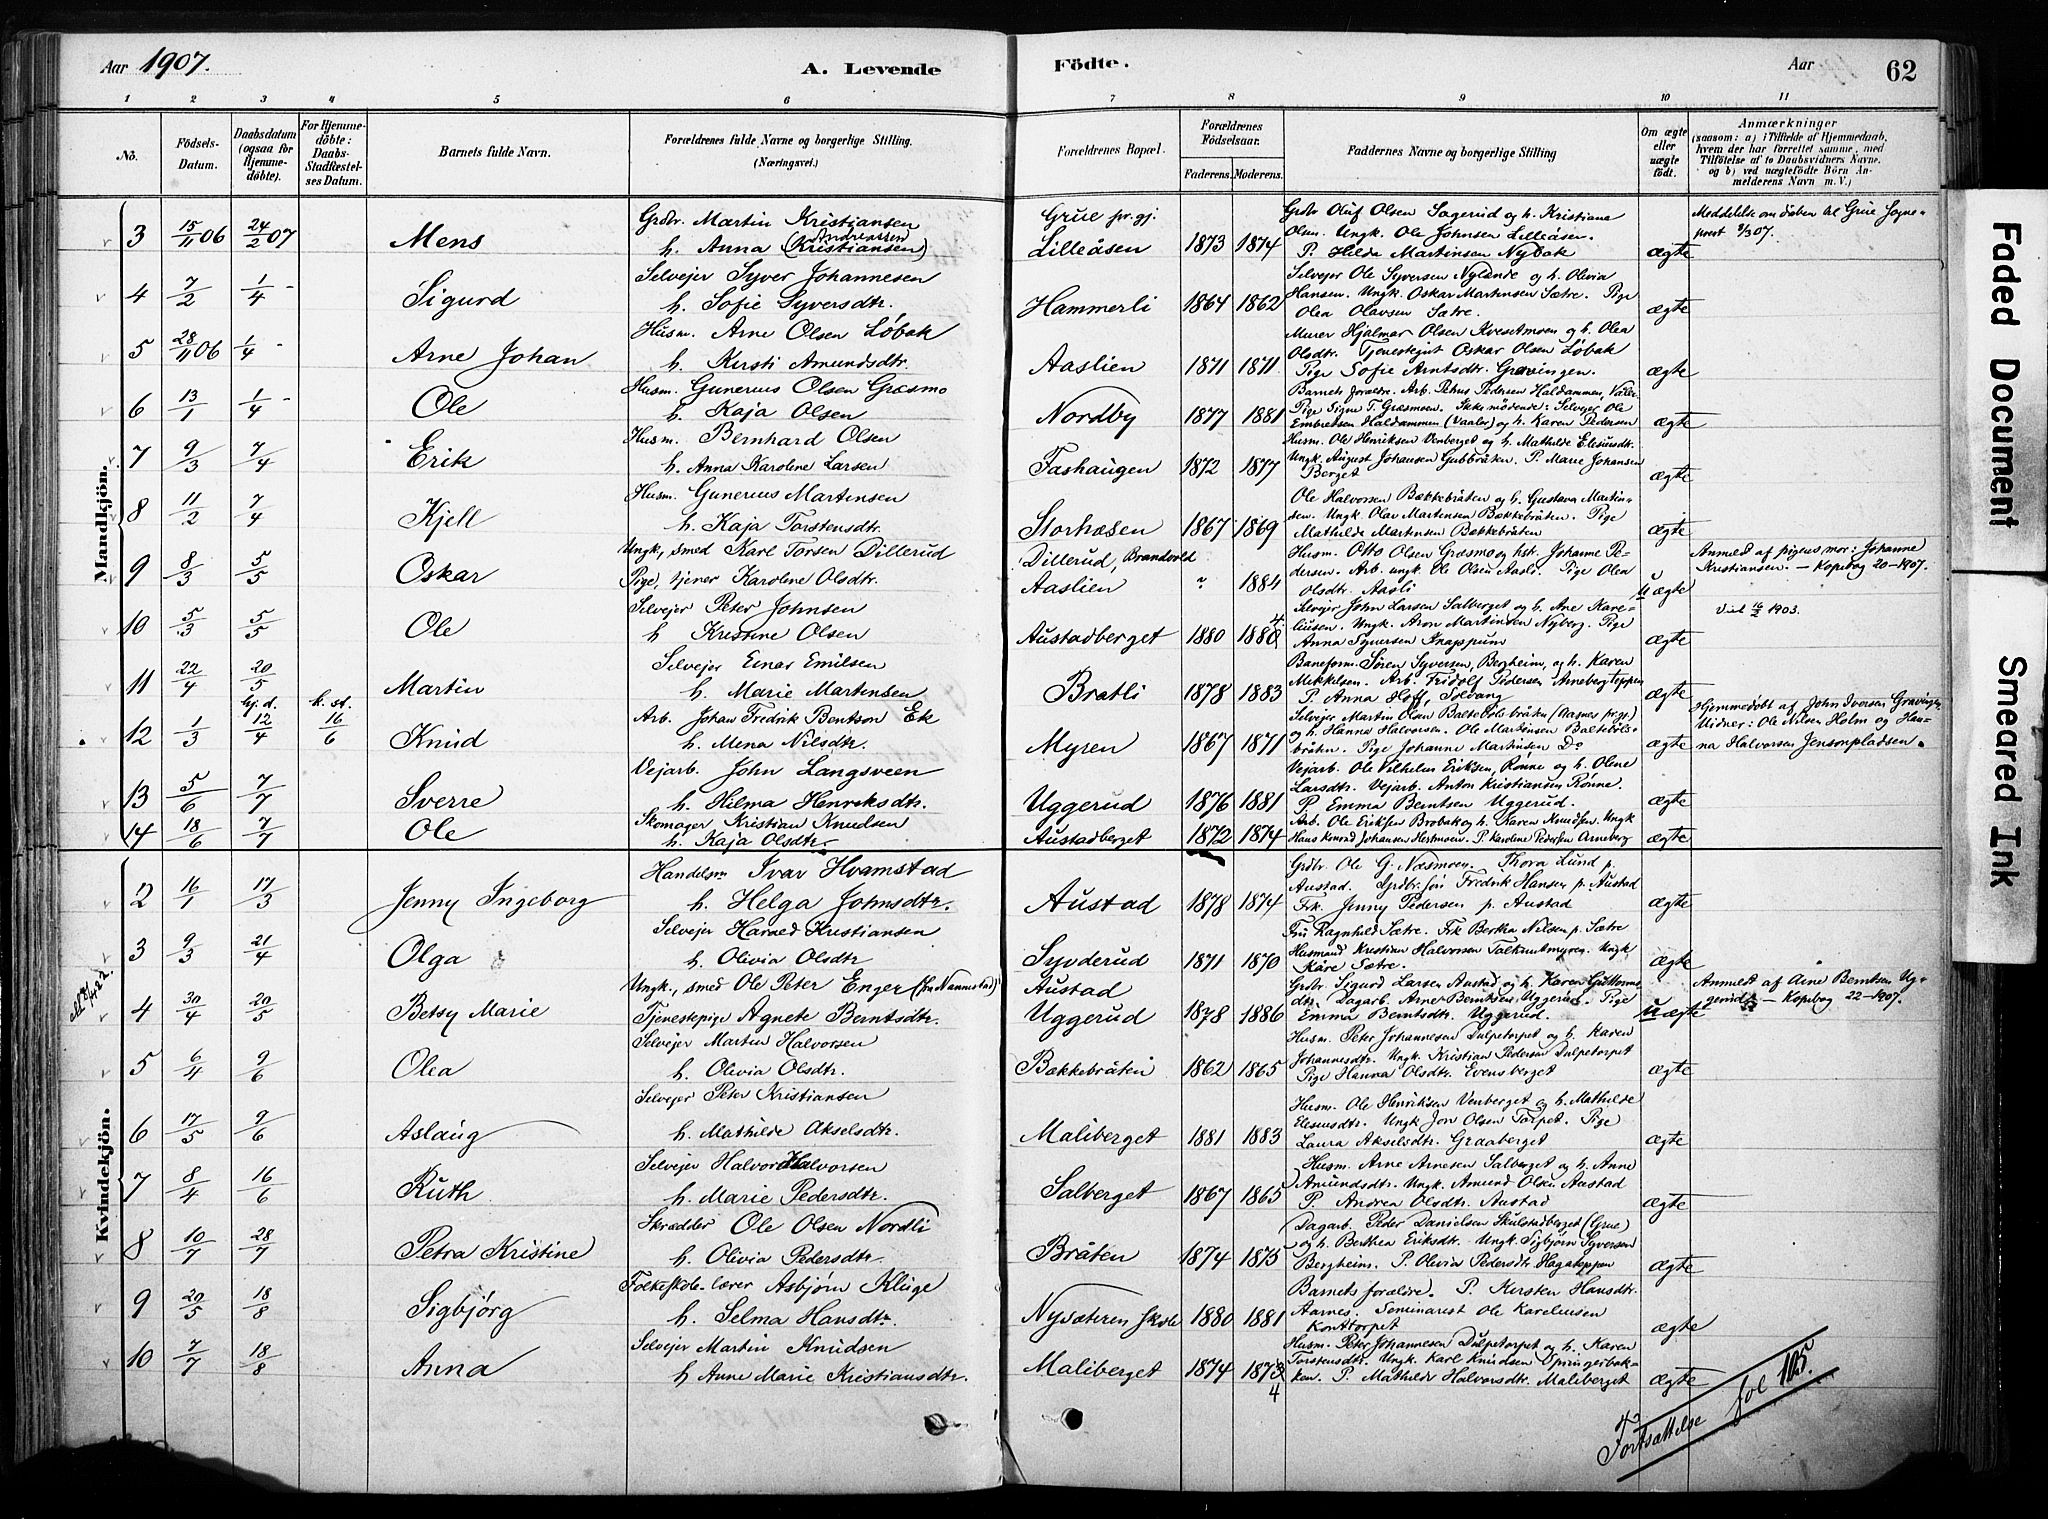 Aar 1907.
A. Levende
Födte.
Aar
62
1 2 3 4 5 6 7 8 9 10 11
No.
Födsels-
Datum.
Daabsdatum
(ogsaa for
Hjemme-
döbte).
For Hjemme-
döbte:
Daabs-
Stadfæstel-
ses Datum.
Barnets fulde Navn.
Forældrenes fulde Navne og borgerlige Stilling.
(Næringsvei.)
Forældrenes Bopæl.
Forældrenes
Födselsaar.
Faderens. Moderens.
Faddernes Navne og borgerlige Stilling
Om ægte
eller
uægte
født.
Anmærkninger
(saasom: a) i Tilfælde af Hjemmedaab,
hvem der har forrettet samme, med
Tilföielse af to Daabsvidners Navne,
og b) ved uægtefödte Börn An-
melderens Navn m. V.)
Mandkjön.
3 15/11 06 24/2 07 Mens
Grdbr. Martin Kristiansen
h. Anna (Kristiansen)
Andreassen
Grue pr.gj.
Lilleåsen 1873 1874
Grdbr Oluf Olsen Sagerud og h. Kristiane
Olsen. Ungk. Ole Johnsen Lilleåsen.
P. Hilda Martinsen Nybak
ægte
Meddelelse om dåben til Grue Sogne-
prest 9/3 07.
4 7/2 1/4 Sigurd
Selvejer Syver Johannesen
h. Sofie Syversdtr.
Hammerli 1864 1862
Selvejer Ole Syversen Nylende og h. Olivia
Hansen. Ungk. Oskar Martinsen Sætre. Pige
Olea Olavsen Sætre.
ægte
5 28/11 06 1/4 Arne Johan
Husm. Arne Olsen Løbak
h. Kirsti Amundsdtr.
Aaslien 1871 1871
Murer Hjalmar Olsen Kvesetmoen og h. Olea
Olsdtr. Tjenestegut Oskar Olsen Løbak
Pige Sofie Arntsdtr. Gravingen.
ægte
6 13/1 1/4 Ole
Husm. Gunerius Olsen Græsmo
h. Kaja Olsen
Nordby 1877 1881
Barnets forældre. Arb. Petrus Pedersen Haldammen, Våler
Pige Signe T. Græsmoen. Ikke mødende: Selvejer Ole
Embretsen Haldammen (Vaaler) og h. Karen Pedersen
ægte
7 9/3 7/4 Erik
Husm. Bernhard Olsen
h. Anna Karoline Larsen
Fashaugen 1872 1877
Husm. Ole Henriksen Venberget og h. Mathilde Elesusdtr.
Ungk. August Johansen Gubbråten. P. Marie Johansen
Berget
ægte
8 11/2 7/4 Kjell
Husm. Gunerius Martinsen
h. Kaja Torstensdtr.
Storhæsen 1867 1869
Ole Halvorsen Bækkebråten og h. Gustava Martin-
sen. Ungk. Olav Martinsen Bækkebråten. Pige
Mathilde Martinsen Bækkebråten
ægte
9 8/3 5/5 Oskar
Ungk., smed Karl Torsen Dillerud
Pige, tjener Karoline Olsdtr.
Dillerud, Brandvold
Aaslien " 1884
Husm. Otto Olsen Græsmo og hst. Johanne Pe-
dersen. Arb. ungk. Ole Olsen Aasli. Pige Olea
Olsdtr. Aasli
uægte
Anmeldt af pigens mor: Johanne
Kristiansen. — Kopibog 20-1907.
10 5/3 5/5 Ole
Selvejer Peter Johnsen
h Kristine Olsen
Austadberget 1880 1880
4
Selvejer John Larsen Salberget og h. Ane Kare-
liusen. Ungk. Aron Martinsen Nyberg. Pige
Anna Syversen Knappum
ægte
Vied 16/2 1903.
11 22/4 20/5 Martin
Selvejer Einar Emilsen
h. Marie Martinsen
Bratli 1878 1883
Baneform. Søren Syversen, Bergheim, og h. Karen
Mikkelsen. Arb. Fridolf Pedersen Arnebergteppen
P. Anna Hoff, Solvang
ægte
12 1/3 hj.d. 12/4 k. st. 16/6 Knud
Arb. Johan Fredrik Bentson Ek
h. Mena Nilsdtr.
Myren 1867 1871
Selvejer Martin Olsen Baltebölsbråten (Aasnes pr.gj.)
og h. Hanna Halvorsen. Ole Martinsen Baltebøls-
bråten. Pige Johanne Martinsen Do
ægte
Hjemmedøbt af John Iversen Gravingen
Vidner: Ole Nilsen Holm og Han-
na Halvorsen Jensonpladsen.
13 5/6 7/7 Sverre
Vejarb. John Langsveen
h. Hilma Henriksdtr.
Uggerud 1876 1881
Vejarb. Ole Vilhelm Eriksen, Rønne og h. Oline
Larsdtr. Vejarb. Anton Kristiansen Rønne.
P. Emma Berntsen Uggerud.
ægte
14 18/6 7/7 Ole
Skomager Kristian Knudsen
h. Kaja Olsdtr.
Austadberget 1872 1874
Arb. Ole Eriksen Brobak og h. Karen Knudsen. Ungk
Hans Konrad Johansen Hestmoen. P. Karoline Pedersen Arneberg
ægte
Kvindekjön.
2 16/1 17/3 Jenny Ingeborg
Handelsm Ivar Hvamstad
h. Helga Johnsdtr.
Austad 1878 1874
Grdbr. Ole G. Næsmoen. Thora Lund p.
Austad. Grdbr.søn Fredrik Hansen p. Austad
Frk. Jenny Pedersen p. Austad
ægte
3 9/3 21/4 Olga
Selvejer Harald Kristiansen
h. Olivia Olsdtr
Syvderud 1871 1870
Fru Ragnhild Sætre. Frk Bertha Nilsen p. Sætre
Husmand Kristian Halvorsen Talkuntmyren. Ungk
Kåre Sætre.
ægte
4 30/4 20/5 Betsy Marie
Ungk., smed Ole Peter Enger (fra Nannestad)
Tjenestepige Agnete Berntsdtr.
Austad
Uggerud 1878 1886
Grdbr. Sigurd Larsen Austad og h. Karen Guttorms-
dtr. Dagarb. Arne Berntsen Uggerud. Pige
Emma Berntsdtr. Uggerud.
uægte
Anmeldt af Arne Berntsen Ug-
gerud — Kopibog 22-1907.
5 6/4 9/6 Olea
Selvejer Martin Halvorsen
h. Olivia Olsdtr.
Bækkebråten 1862 1865
Husm. Peter Johannesen Dulpetorpet og h. Karen
Johannesdtr. Ungk. Kristian Pedersen Dulpetorpet
Pige Hanna Olsdtr. Evensberget
ægte
6 17/5 9/6 Aslaug
Selvejer Peter Kristiansen
h. Mathilde Akselsdtr.
Maliberget 1881 1883
Husm. Ole Henriksen Venberget og h. Mathilde
Elesusdtr. Ungk Jon Olsen Torpet. Pige
Laura Akselsdtr. Graaberget
ægte
7 8/4 16/6 Ruth
Selvejer Halvor Halvorsen
h. Marie Pedersdtr.
Salberget 1867 1865
Husm. Arne Arnesen Salberget og h. Anne
Amundsdtr. Ungk. Amund Olsen Austad
P. Andrea Olsdtr. Austad
ægte
8 10/7 28/7 Petra Kristine
Skrædder Ole Olsen Nordli
h. Olivia Pedersdtr.
Bråten 1874 1875
Dagarb. Peder Danielsen Skulstadberget (Grue)
og h. Berthea Eriksdtr. Ungk. Sigbjørn Syversen
Bergheim. P. Olivia Pedersdtr Hagateppen
ægte
9 20/5 18/8 Sigbjörg
Folkeskole-lærer Asbjörn Kluge
h. Selma Hansdtr.
Nysæteren Skole 1880 1881
Barnets forældre. P. Kirsten Hansdtr.
Aarnes. Seminarist Ole Kareliusen
Konttorpet
ægte
10 7/7 18/8 Anna
Selvejer Martin Knudsen
h Anne Marie Kristiansdtr.
Maliberget 1874 1873
4
Husm. Peter Johannesen Dulpetorpet og h. Karen
Torstensdtr. Ungk. Karl Knudsen Springerbak-
ken. P. Mathilde Halvorsdtr. Maliberget
ægte
Fortsættelse fol 105.
Faded Document
Smeared Ink